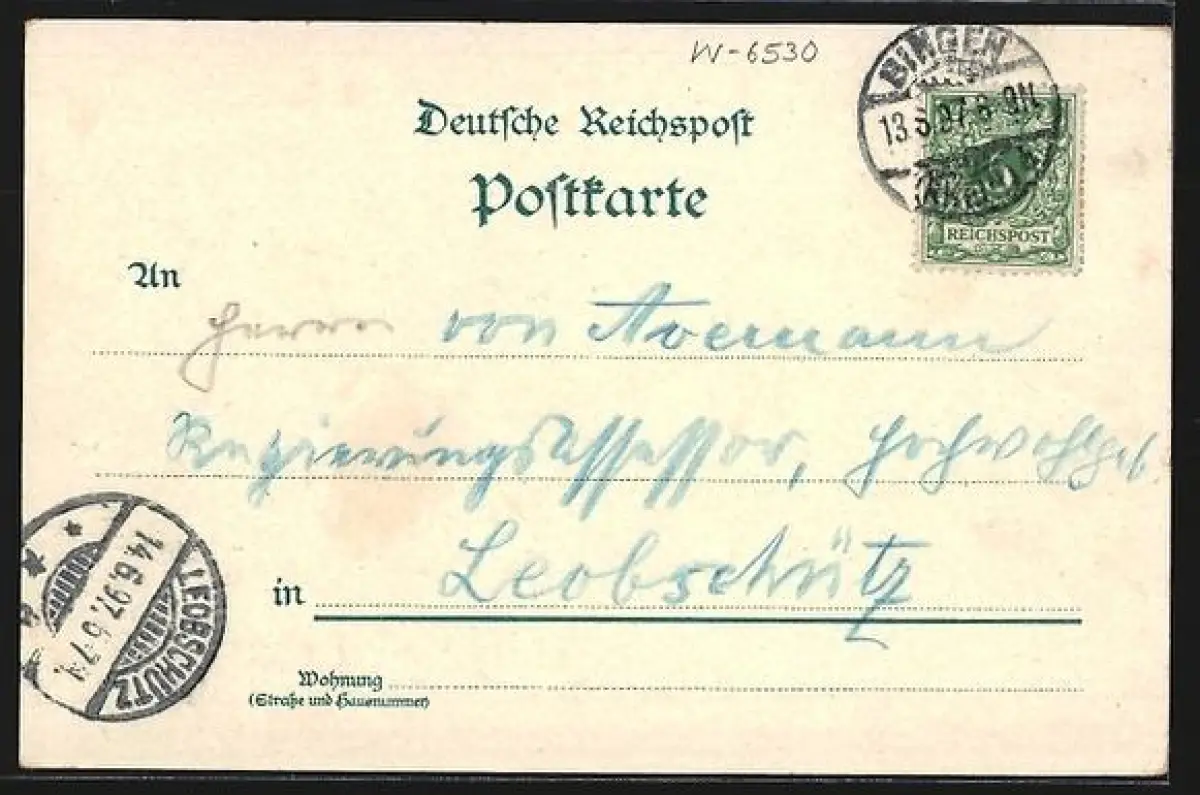 W-6530
BINGEN
13 6 97. 8-9N.
Deutsche Reichspost
Postkarte
REICHSPOST
An
Herrn von Avemann
Regierungsassessor, Hochwohlgeb.
in Leobschütz
LEOBSCHÜTZ
14.6.97. 6-7N.
Wohnung
(Straße und Hausnummer)